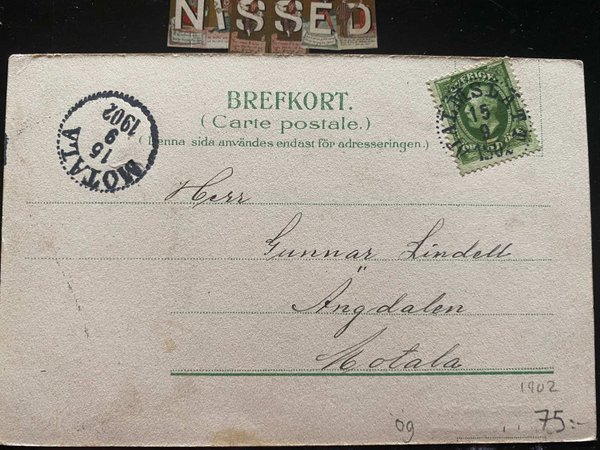 NISSED
BREFKORT.
( Carte postale. )
( Denna sida användes endast för adresseringen. )
SVERIGE
15
9
1902
MOTALA
16
9
1902
Herr
Gunnar Lindell
Ängdalen
Motala
1902
og
75:-